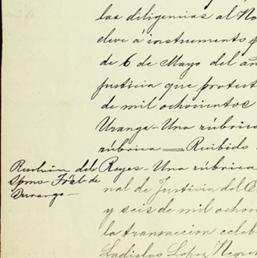 las diligencias al No
eleve á instrumento p
de 6 de Mayo del añ
justicia que protest
de mil ochocientos
Urange. Una rúbrica
rúbrica = Recibido
Reyes. Una rúbrica
Durango
nal de Justicia del E
y seis de mil ochoc
la transaccion celeb
Ladislao Lopez Negre